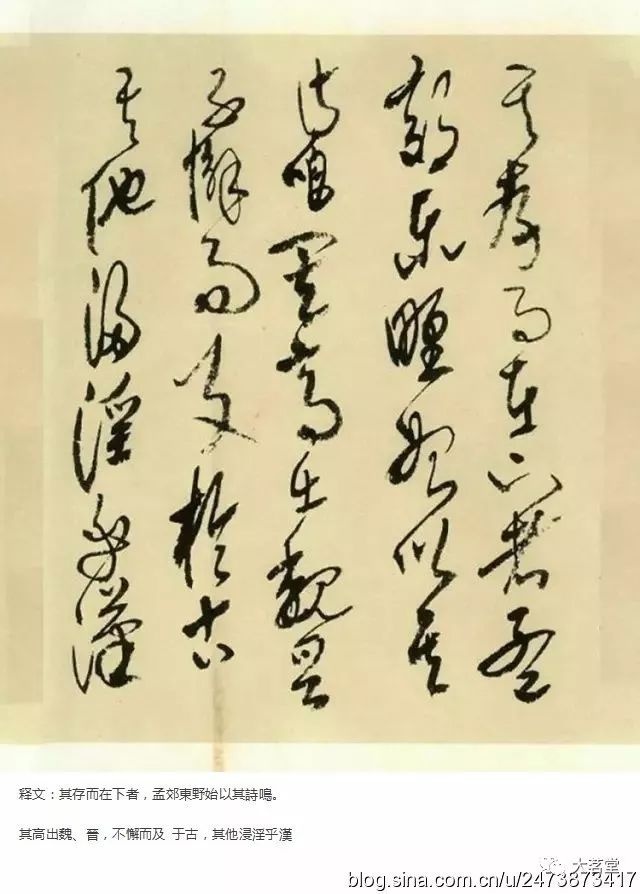 其存而在下者孟
郊東野始以其
詩鳴其高出魏晉
不懈而及於古
其他浸淫乎漢
释文：其存而在下者，孟郊東野始以其詩鳴。
其高出魏、晉，不懈而及 于古，其他浸淫乎漢
大茗堂
blog.sina.com.cn/u/2473873417